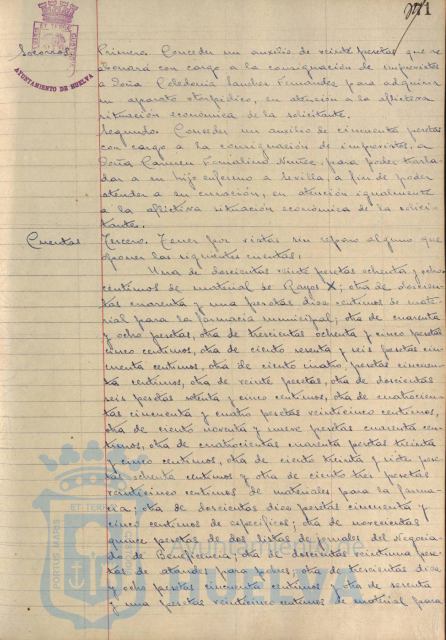 Socorros
Primero. Conceder un auxilio de veinte pesetas que se
abonará con cargo a la consignación de imprevistos
a Doña Celedonia Sanchez Fernandez para adquirir
un aparato otorpédico, en atención a la aflictiva
situación económica de la solicitante.
Segundo. Conceder un auxilio de cincuenta pesetas
con cargo a la consignación de imprevistos, a
Doña Carmen Fernandino Nuñez, para poder trasla-
dar a su hijo enfermo a Sevilla, a fin de poder
atender a su curación, en atención igualmente
a la aflictiva situación económica de la solici-
tante.
Cuentas
Tercero. Tener por vistas sin reparo alguno que
oponer las siguientes cuentas:
Una de doscientas veinte pesetas ochenta y ocho
centimos de material de Rayos X; otra de doscien-
tas cuarenta y una pesetas diez centimos de mate-
rial para la farmacia municipal; otra de cuarenta
y ocho pesetas, otra de trescientas ochenta y cinco pesetas
cinco centimos, otra de ciento sesenta y seis pesetas cin-
cuenta centimos, otra de ciento cuatro pesetas cincuen-
ta centimos, otra de veinte pesetas, otra de doscientas
seis pesetas setenta y cinco centimos, otra de cuatrocien-
tas cincuenta y cuatro pesetas veinticinco centimos,
otra de ciento noventa y nueve pesetas cuarenta cen-
timos, otra de cuatrocientas cuarenta pesetas treinta
y cinco centimos, otra de ciento treinta y siete pese-
tas ochenta centimos y otra de ciento tres pesetas
veinticinco centimos de materiales para la farma-
cia; otra de doscientas diez pesetas cincuenta y
cinco centimos de especificos; otra de novecientas
quince pesetas de dos listas de jornales del Negocia-
do de Beneficencia; otra de doscientas veintiuna pese-
tas de ataudes para pobres; otra de trescientas diez
y ocho pesetas cincuenta centimos, otra de sesenta
y una pesetas veinticinco centimos de material para
AYUNTAMIENTO DE HUELVA
PORTUS MARIS
ET TERRAE
HUELVA